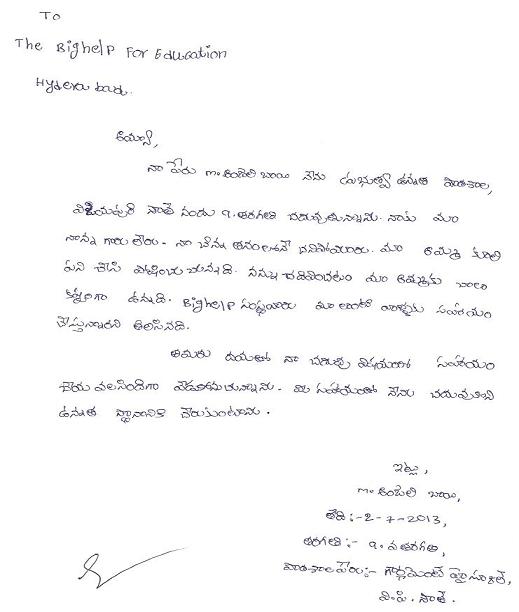 To
The Bighelp For Education
Hyderabad.
అయ్యా,
నా పేరు m. అంబేలి బాయి నేను ప్రభుత్వ ఉన్నత పాఠశాల,
విజయపురి సౌత్ నందు 9. తరగతి చదువుతున్నాను. నాకు మా
నాన్న గారు లేరు. నా చిన్న తనంలోనే చనిపోయారు. మా అమ్మ కూలి
పని చేసి పోషించు చున్నది. నన్ను చదివించటం మా అమ్మకు చాలా
కష్టంగా ఉన్నది. Bighelp సంస్థవారు మా లాంటి వాళ్ళకు సహాయం
చేస్తున్నారని తెలిసినది.
తమరు దయతో నా చదువు విషయంలో సహాయం
చేయ వలసిందిగా వేడుకొనుచున్నాను. మీ సహాయంతో నేను చదువుకుని
ఉన్నత స్థానానికి చేరుకుంటాను.
ఇట్లు,
m. అంబేలి బాయి,
తేది :- 2-7-2013,
తరగతి :- 9. వ తరగతి,
పాఠశాల పేరు :- గవర్నమెంట్ హైస్కూల్,
వి.పి. సౌత్.